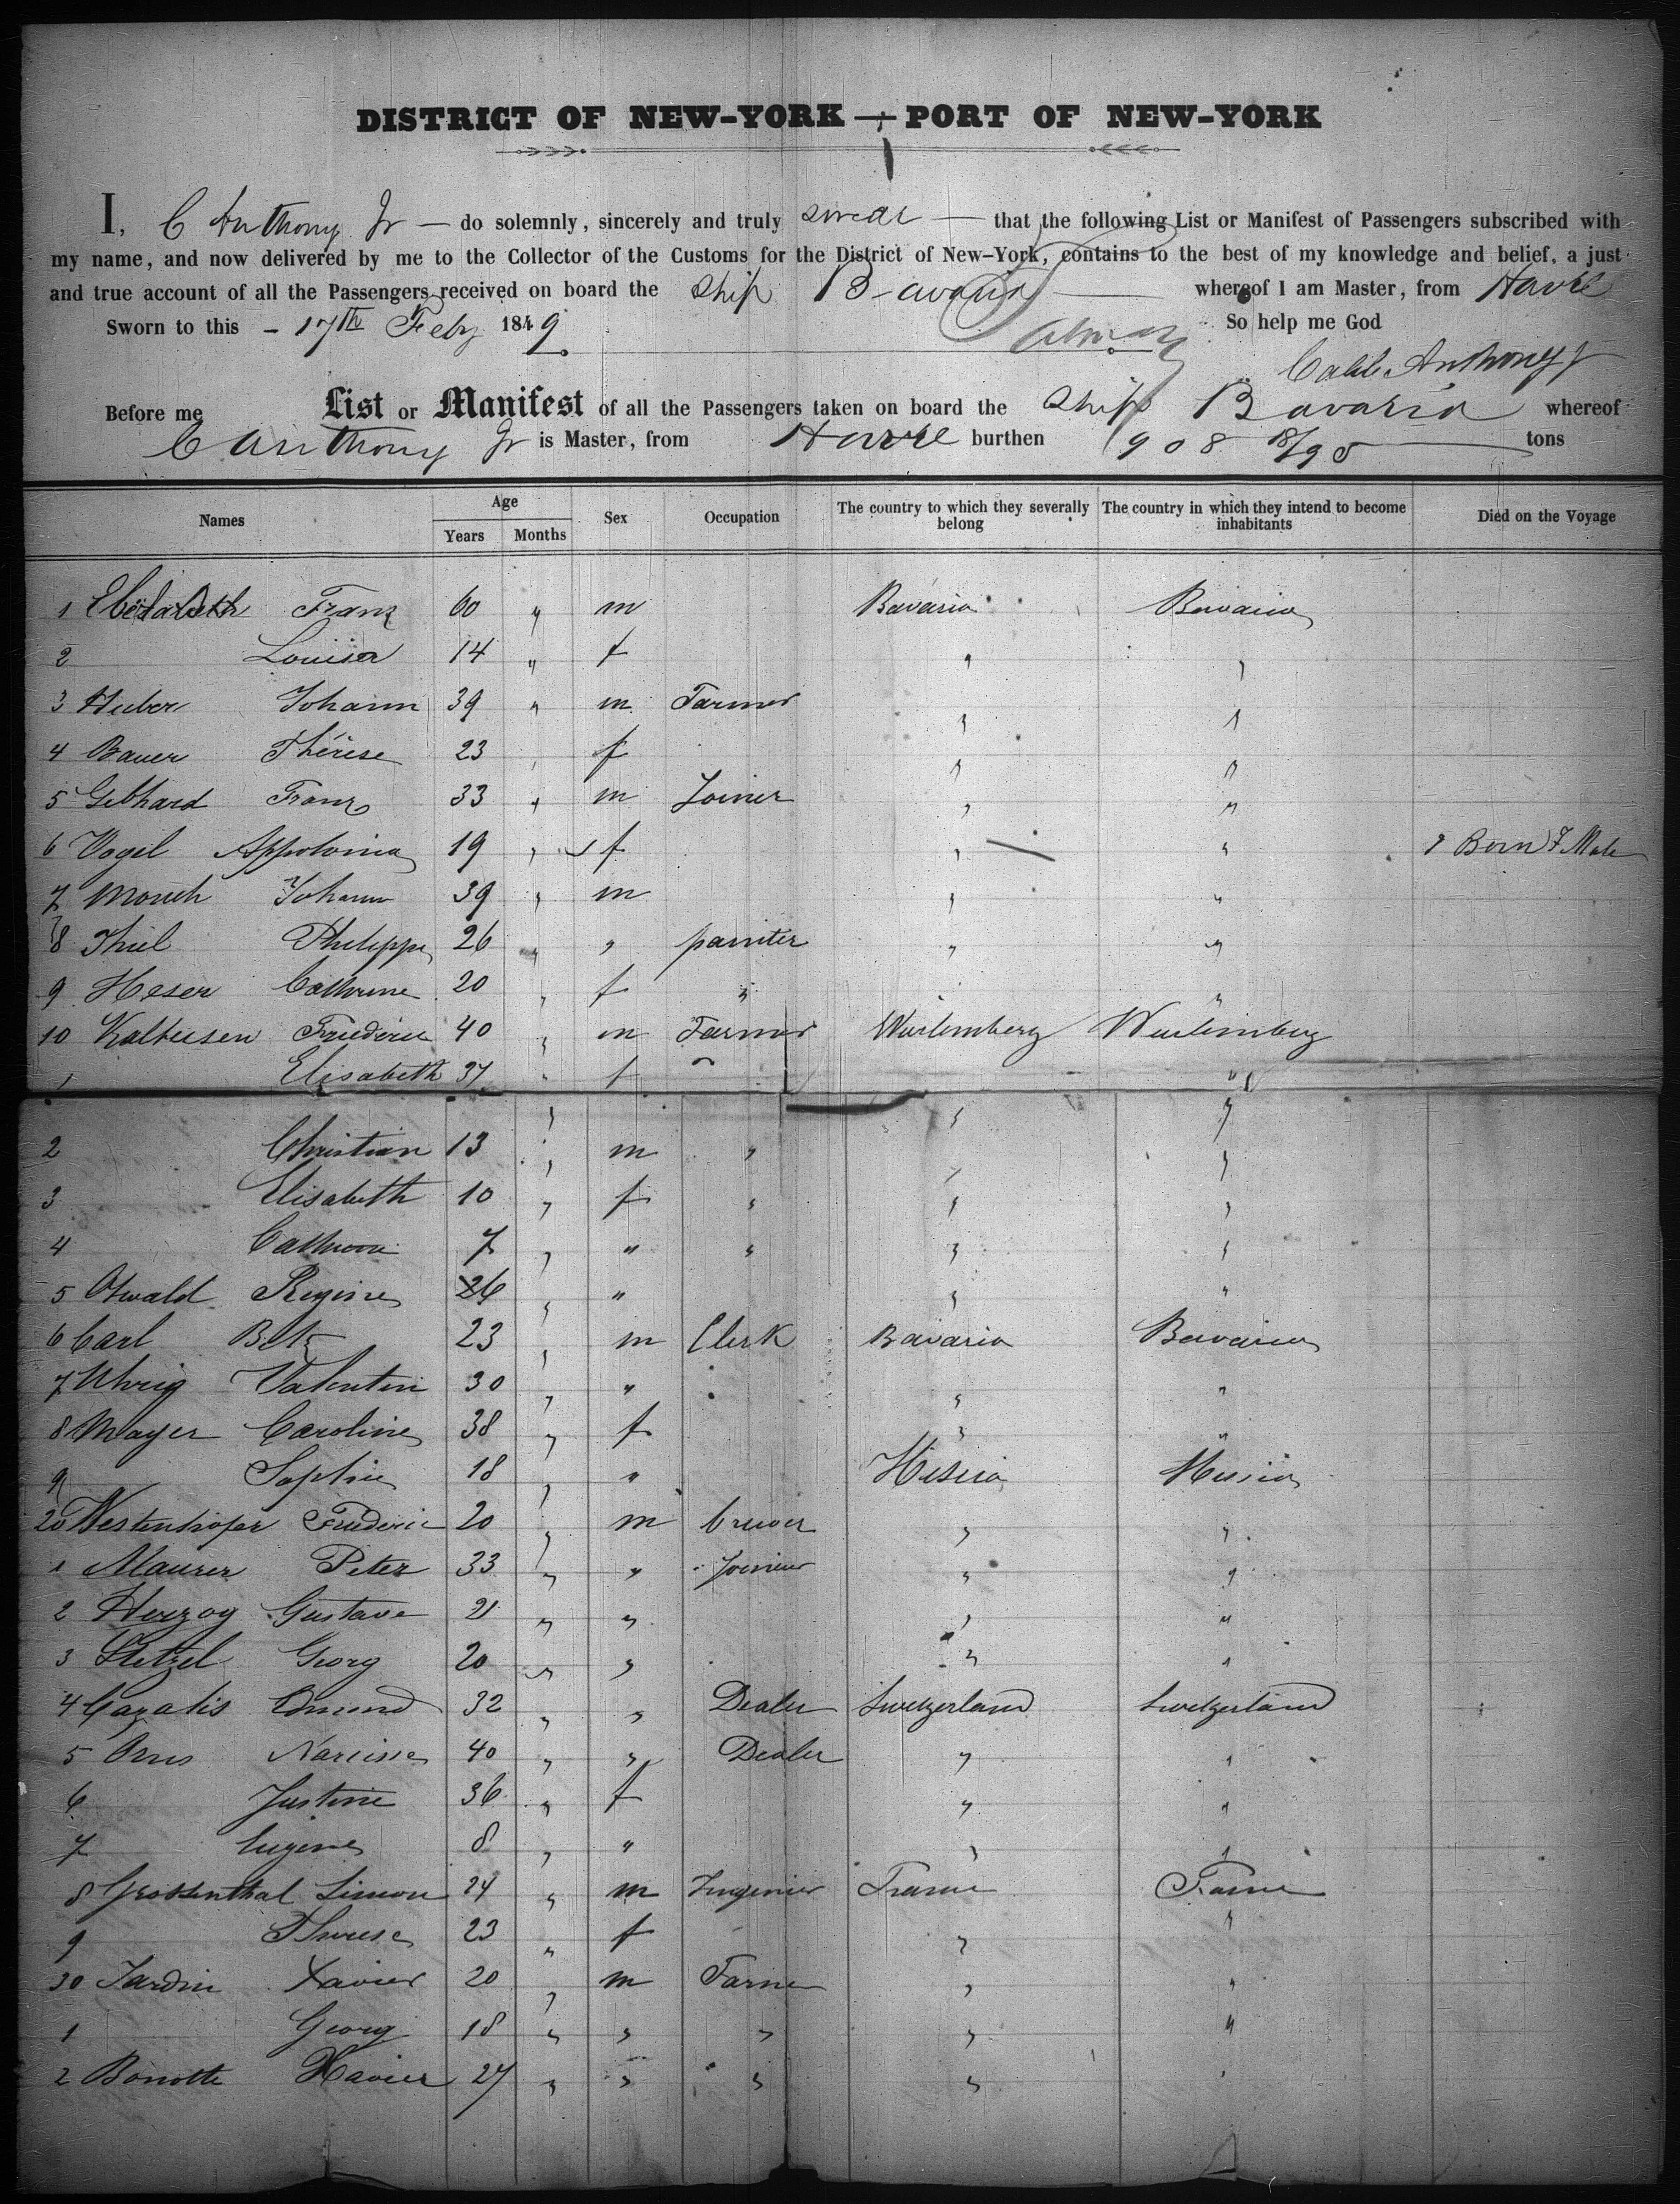 DISTRICT OF NEW-YORK — PORT OF NEW-YORK
I, C Anthony Jr — do solemnly, sincerely and truly swear — that the following List or Manifest of Passengers subscribed with
my name, and now delivered by me to the Collector of the Customs for the District of New-York, contains to the best of my knowledge and belief, a just
and true account of all the Passengers received on board the Ship Bavaria whereof I am Master, from Havre
Sworn to this – 17th Feby 1849 So help me God
Caleb Anthony Jr
Before me List or Manifest of all the Passengers taken on board the Ship Bavaria whereof
C Anthony Jr is Master, from Havre burthen 908 18/95 tons
Names Age Years Months Sex Occupation The country to which they severally belong The country in which they intend to become inhabitants Died on the Voyage
1 Franz 60 " m Bavaria Bavaria
2 Louisa 14 " f " "
3 Huber Johann 39 " m Farmer " "
4 Bauer Thérese 23 " f " "
5 Gebhard Franz 33 " m Joiner " "
6 Vogel Appolonia 19 " f " " 1 Born F Male
7 Mouch Johann 39 " m " "
8 Thiel Philippe 26 " " painter " "
9 Heser Cathrine 20 " f " " "
10 Kaltusen Frederic 40 " m Farmer Wurtemberg Wurtemberg
1 Elisabeth 37 " f " "
2 Christian 13 " m " " "
3 Elisabeth 10 " f " " "
4 7 " " " " "
5 Oswald Regine 26 " " " "
6 Carl Betz 23 " m Clerk Bavaria Bavaria
7 Uhrig Valentin 30 " " " "
8 Mayer Caroline 38 " f " "
9 Sophie 18 " " Hessia Hessia
20 Westenhofer Frederic 20 " m brewer " "
1 Maurer Peter 33 " " Joineur " "
2 Herzog Gustave 21 " " " "
3 Georg 20 " " " "
4 Cazatis Edmund 32 " " Dealer Switzerland Switzerland
5 Narcisse 40 " " Dealer " "
6 Justine 36 " f " "
7 Eugene 8 " " " "
8 Grossenthal Simon 24 " m Ingenier France France
9 Therese 23 " f " "
30 Jardin Xavier 20 " m Farmer " "
1 Georg 18 " " " " "
2 Bonotte Xavier 27 " " " " "